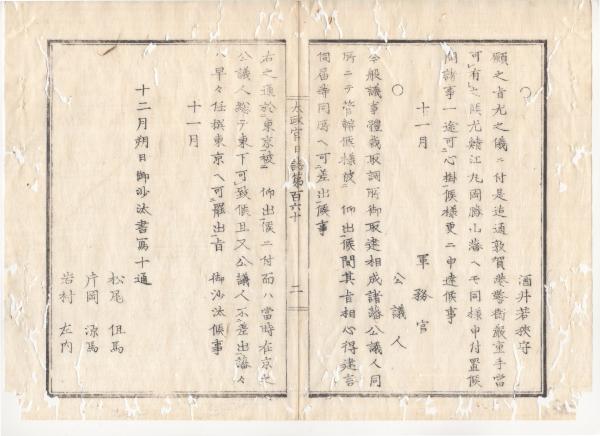 ○
酒井若狭守
願之書尤之儀ニ付是迄通敦賀港警衛厳重手当
可有之候尤鯖江丸岡勝山藩ヘモ同様申付置候
間諸事一途可心樹候様更ニ申達候事
十一月
軍務官
○
公議人
今般議事體裁取調所御取建相成諸藩公議人同
所ニテ管轄候様被 仰出候間其旨相心得建言
伺届等同所ヘ可差出候事
太政官日誌第百六十
二
右之通於東京被 仰出候ニ付而ハ當時在京之
公議人総テ東下可致候且又公議人不差出藩々
ハ早々任撰東京ヘ可羅出旨 御沙汰候事
十一月
十二月朔日御沙汰書寫十通
松尾但馬
片岡源馬
岩村左内